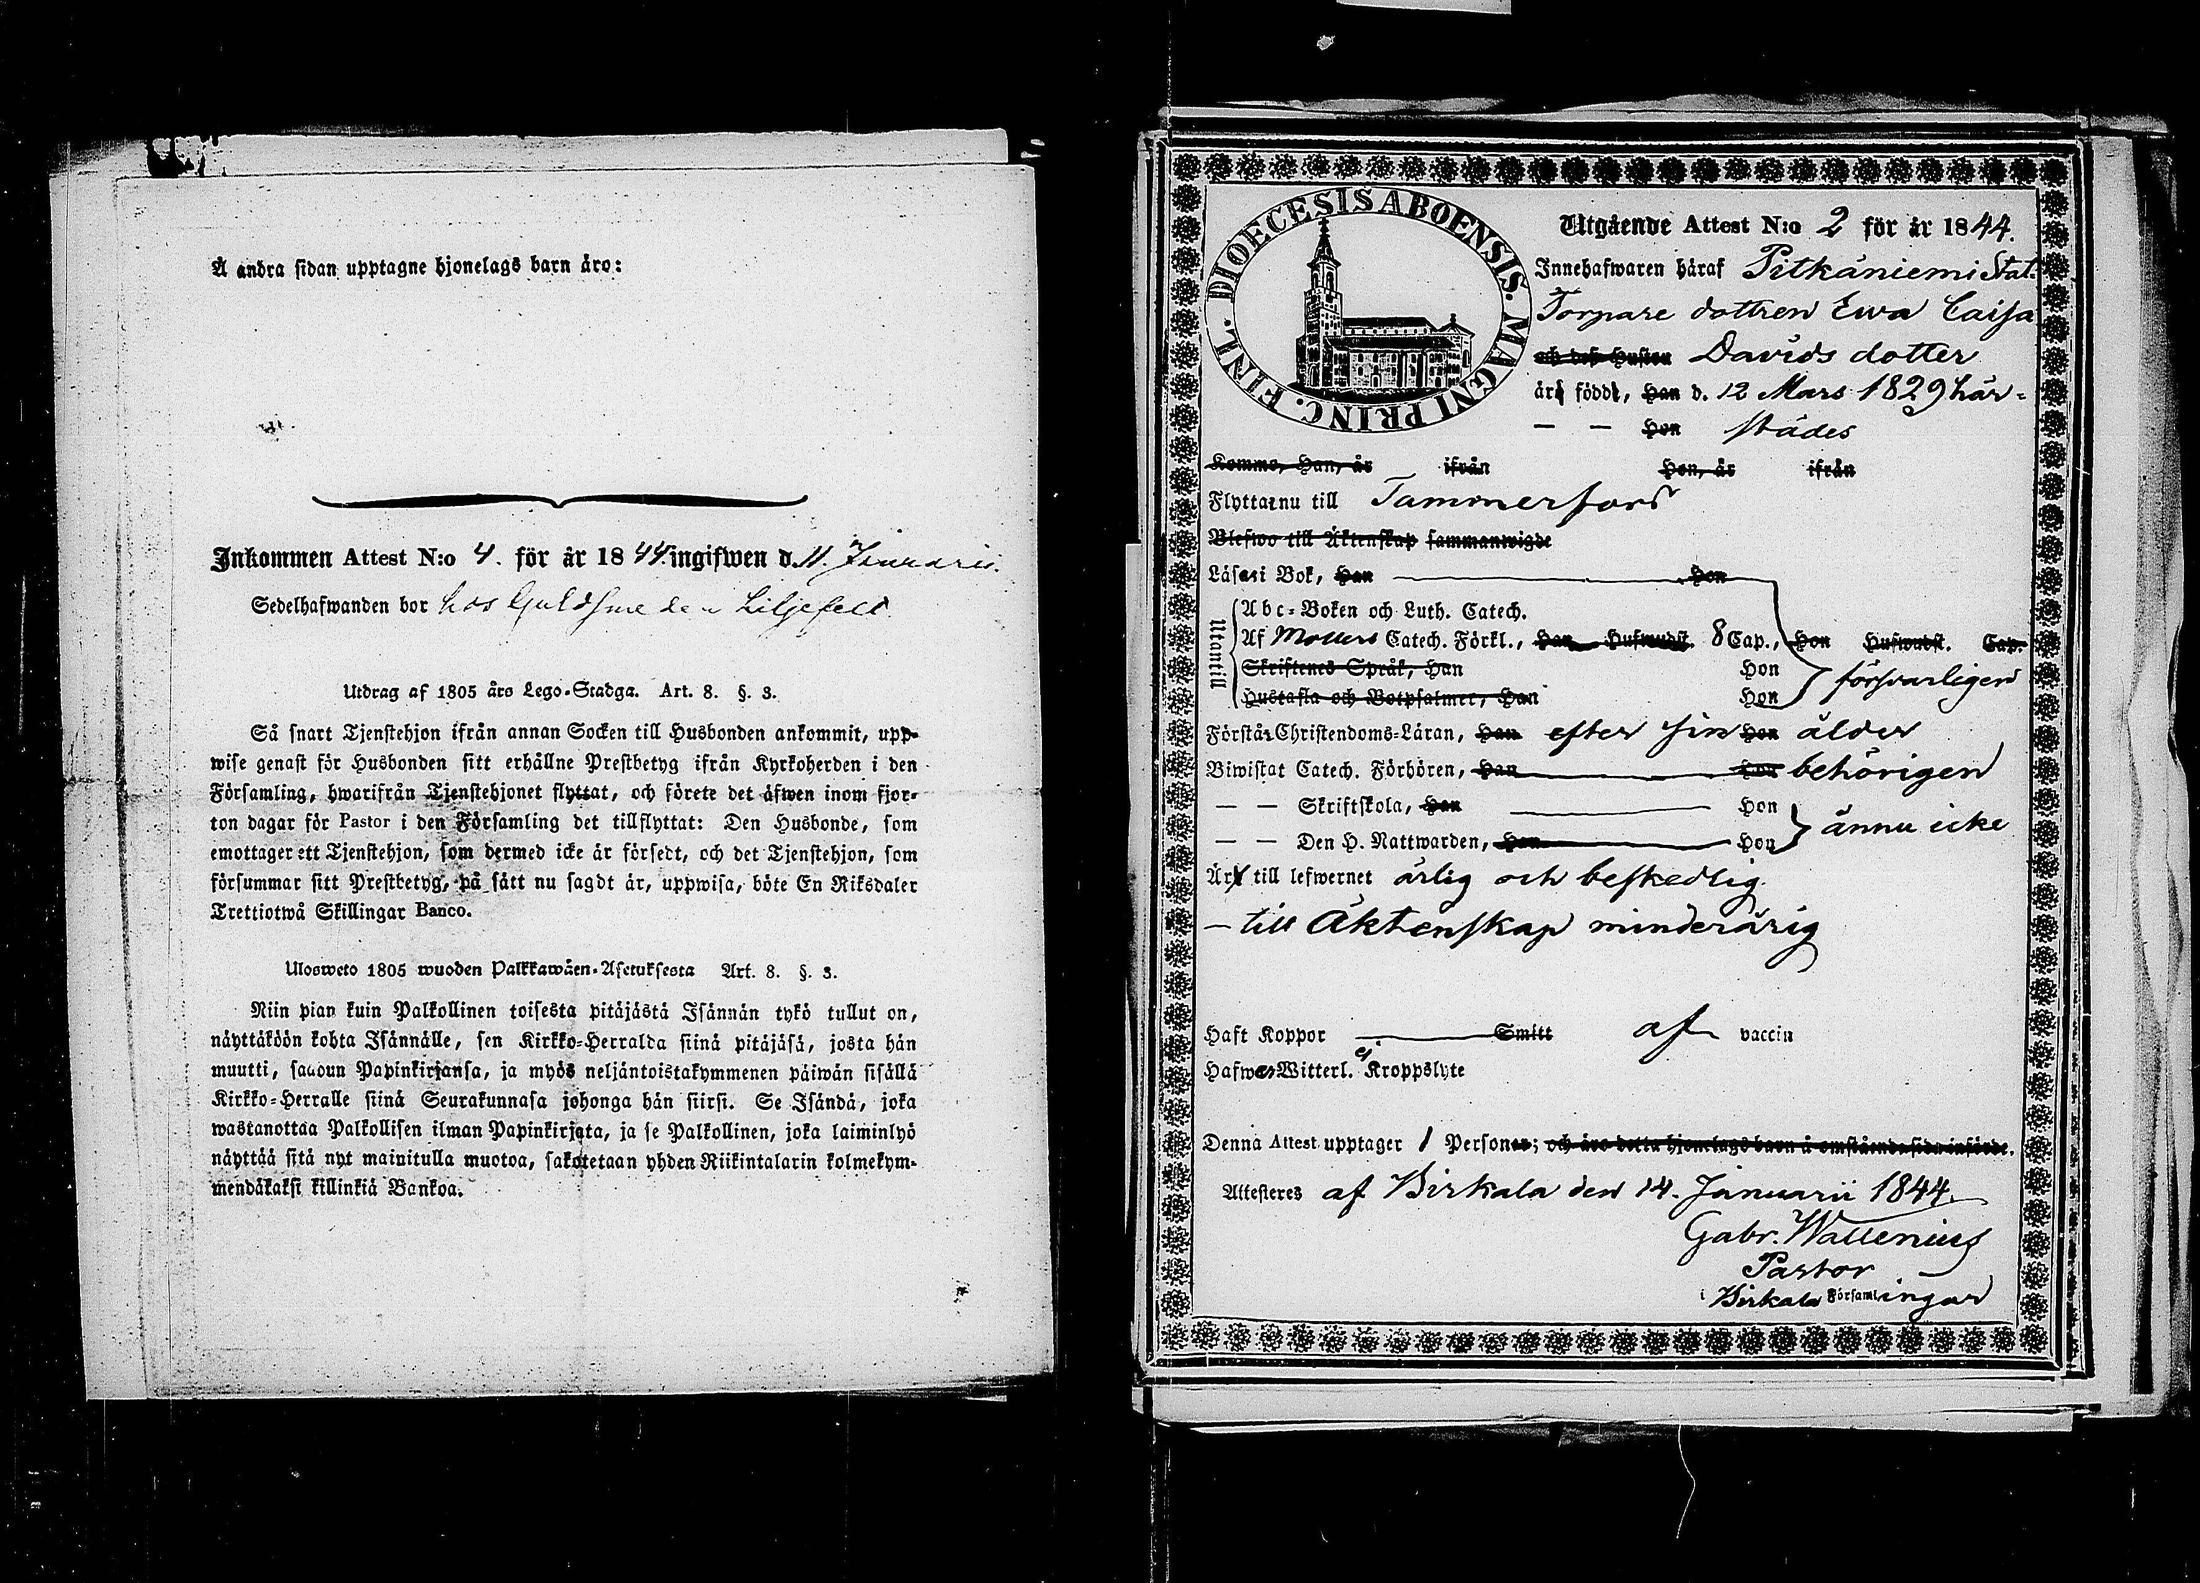 Å andra sidan upptagne hjonelags barn äro:
Inkommen Attest N:o 4. för år 1844. ingifwen d. 11. Januarii.
Sedelhafwanden bor hos Guldsmeden Liljefelt
Utdrag af 1805 års Lego-Stadga. Art. 8. §. 3.
Så snart Tjenstehjon ifrån annan Socken till Husbonden ankommit, upp-
wise genast för Husbonden sitt erhållne Prestbetyg ifrån Kyrkoherden i den
Församling, hwarifrån Tjenstehjonet flyttat, och förete det äfwen inom fjor-
ton dagar för Pastor i den Församling det tillflyttat: Den Husbonde, som
emottager ett Tjenstehjon, som dermed icke är försedt, och det Tjenstehjon, som
försummar sitt Prestbetyg, på sätt nu sagdt är, uppwisa, böte En Riksdaler
Trettiotwå Skillingar Banco.
Ulosweto 1805 wuoden Palkkawäen-Asetuksesta Art. 8. §. 3.
Niin pian kuin Palkollinen toisesta pitäjästä Isännän tykö tullut on,
näyttäköön kohta Isännälle, sen Kirkko-Herralda siinä pitäjäsä, josta hän
muutti, saadun Papinkirjansa, ja myös neljäntoistakymmenen päiwän sisällä
Kirkko-Herralle siinä Seurakunnasa johonga hän siirsi. Se Isändä, joka
wastanottaa Palkollisen ilman Papinkirjata, ja se Palkollinen, joka laiminlyö
näyttää sitä nyt mainitulla muotoa, sakotetaan yhden Riikintalarin kolmekym-
mendäkaksi killinkiä Bankoa.
DIOECESIS ABOENSIS. MAGNI PRINC. FINL.
Utgående Attest N:o 2 för år 1844.
Innehafwaren häraf Pitkäniemi Stat.
Torpare dottren Ewa Caisa
och dess Hustru Davids dotter
är född, Han d. 12 Mars 1829 här-
— — Hon städes
Kommo, Han, år ifrån Hon, år ifrån
Flyttar nu till Tammerfors
Blefwo till Äktenskap sammanwigde
Läser i Bok, Han Hon
Utantill
Abc-Boken och Luth. Catech.
Af Mollers Catech. Förkl., Han Hufwudst. 8 Cap., Hon Hufwudst. Cap.
Skriftenes Språk, Han Hon försvarligen
Hustafla och Botpsalmer, Han Hon
Förstår Christendoms-Läran, Han efter sin Hon ålder
Biwistat Catech. Förhören, Han Hon behörigen
— — Skriftskola, Han Hon
— — Den H. Nattwarden, Han Hon ännu icke
Är till lefwernet ärlig och beskedlig.
— till Äktenskap minderårig
Haft Koppor Smitt af vaccin
Hafwer Witterl. ej Kroppslyte
Denna Attest upptager 1 Persone; och äro detta hjonelags barn å omstående sida införde.
Attesteres af Birkala den 14. Januarii 1844.
Gabr. Wallenius
Pastor
i Birkala Församlingar